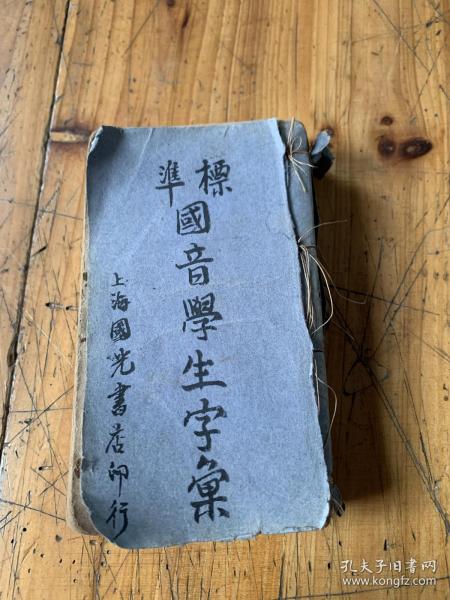 標準
國音學生字彙
上海國光書店印行
孔夫子旧书网
www.kongfz.com